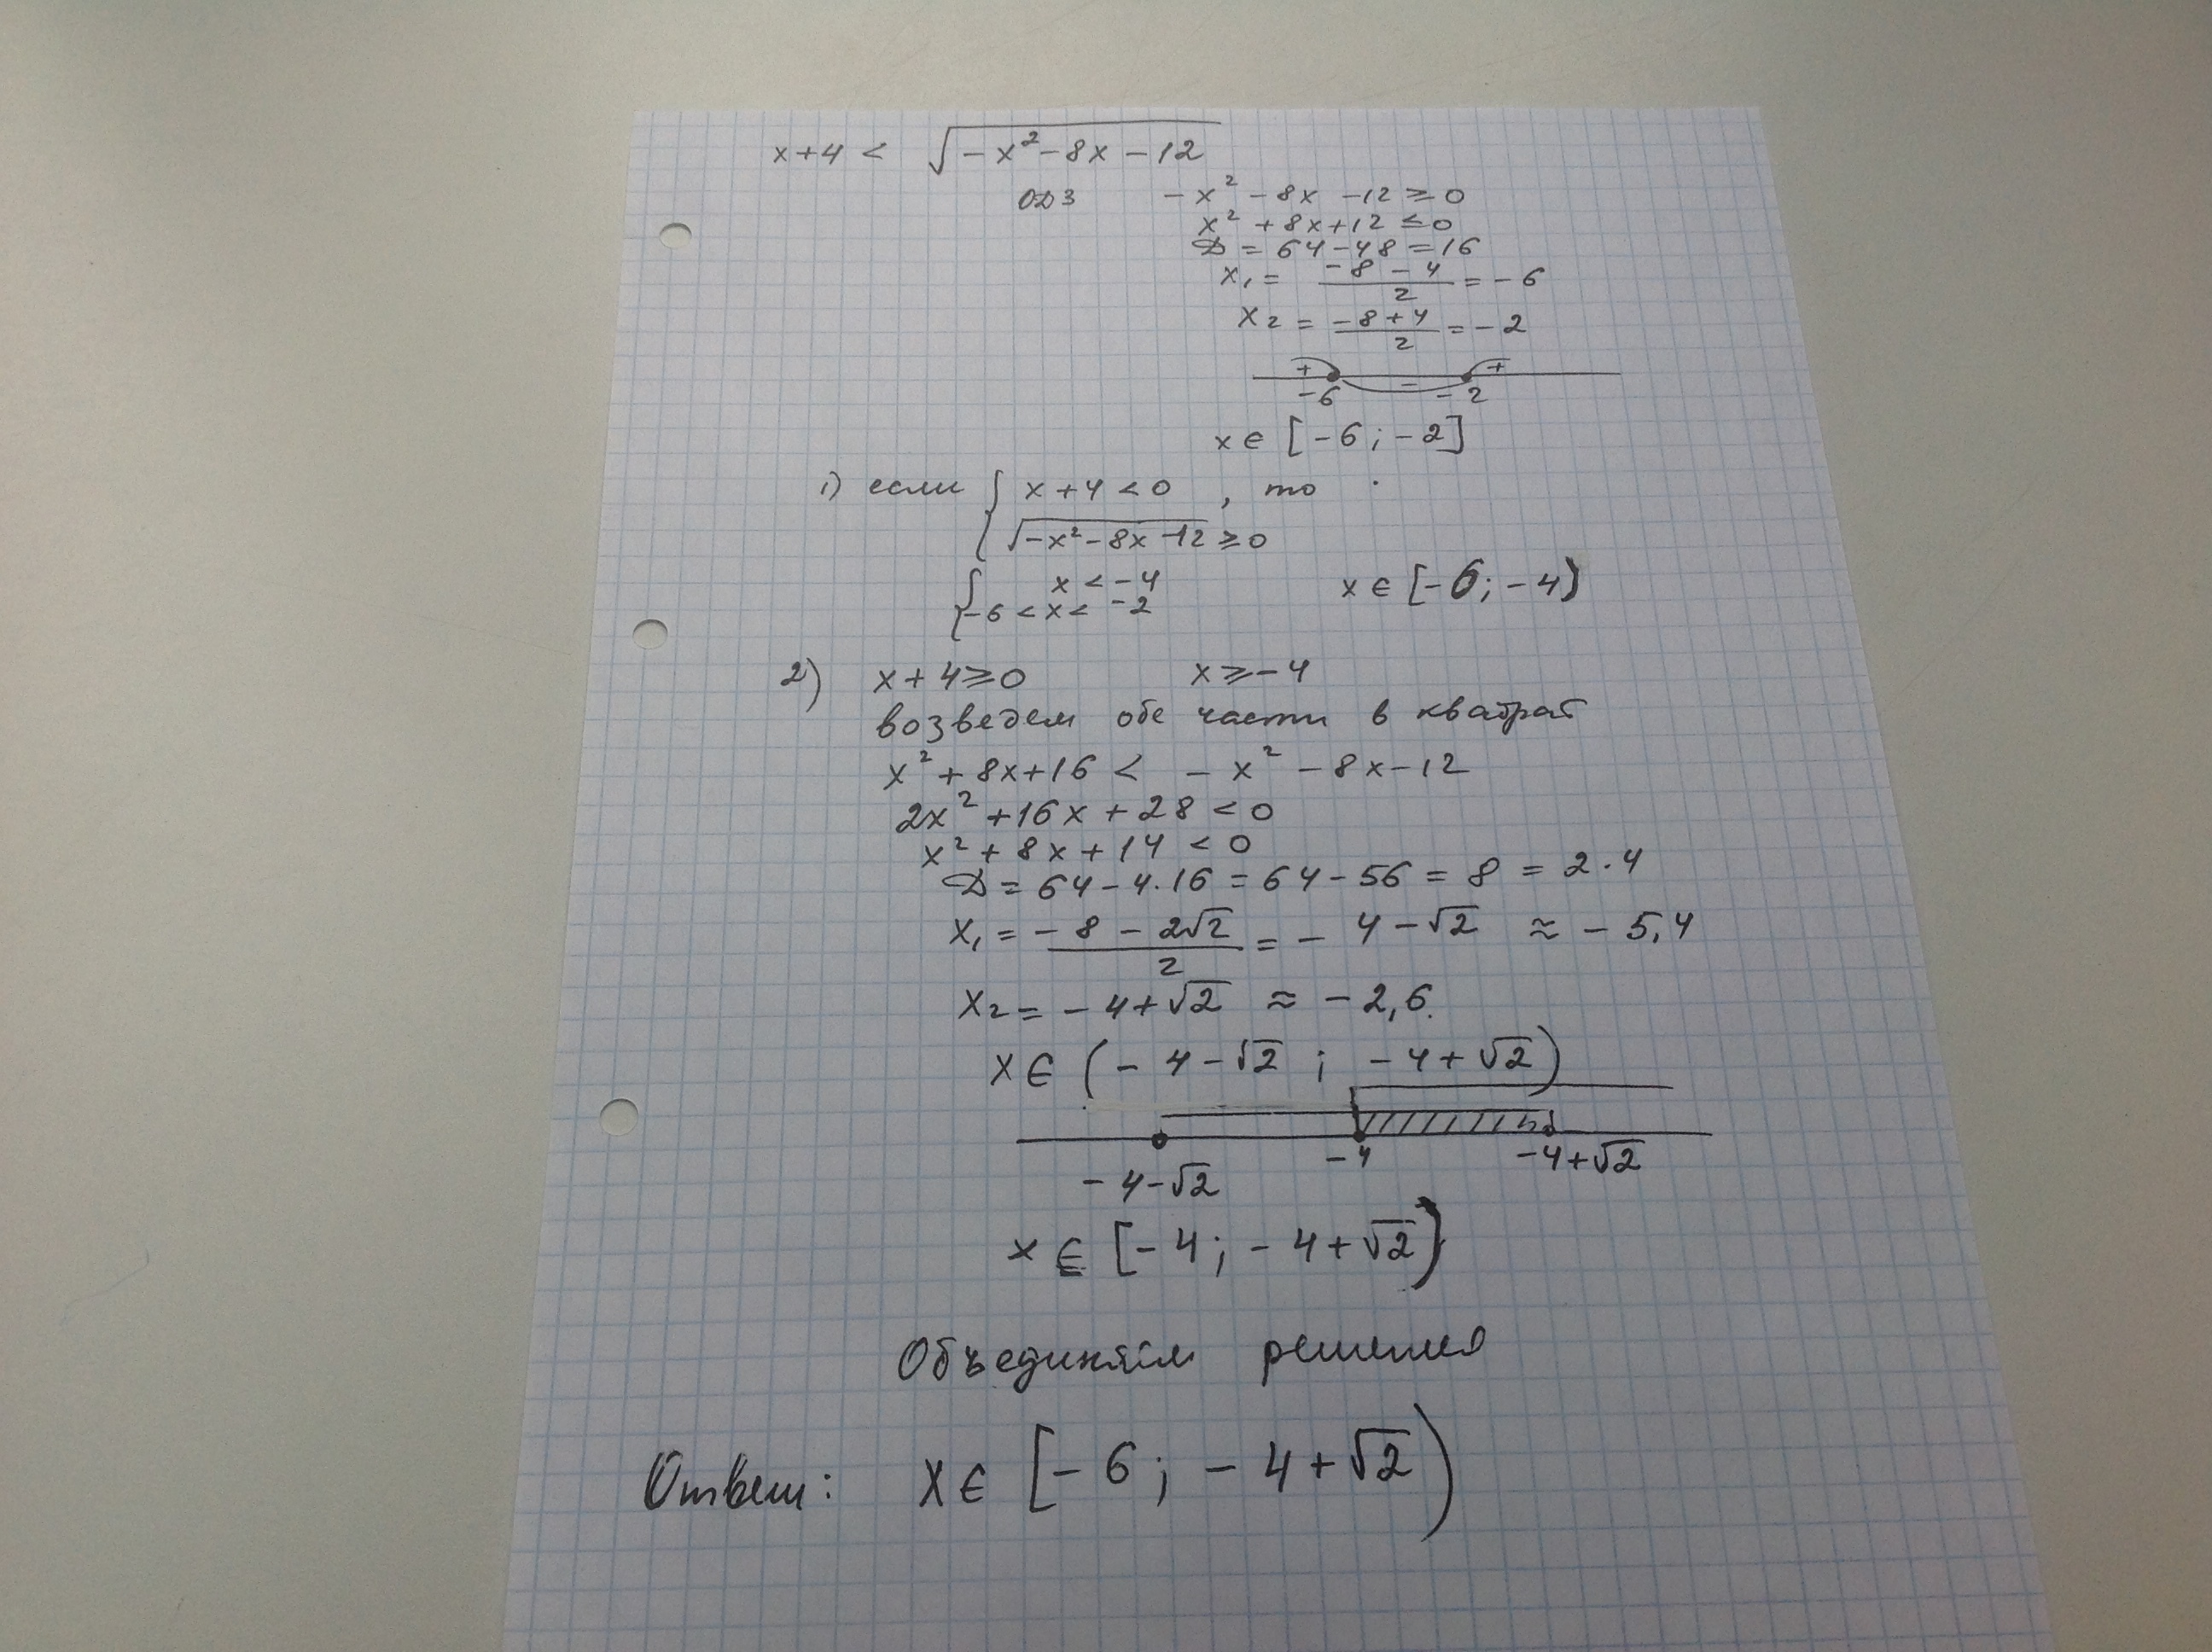 x+4 < √(-x²-8x-12)
ОДЗ -x²-8x-12≥0
x²+8x+12≤0
D=64-48=16
x₁= (-8-4)/2 =-6
x₂= (-8+4)/2 =-2
+ - +
-6 -2
x∈[-6;-2]
1) если { x+4<0 , то
√(-x²-8x-12) ≥0
{ x<-4 x∈[-6;-4)
-6<x<-2
2) x+4≥0 x≥-4
возведем обе части в квадрат
x²+8x+16 < -x²-8x-12
2x²+16x+28<0
x²+8x+14<0
D=64-4·16=64-56=8=2·4
x₁= (-8-2√2)/2 =-4-√2 ≈ -5,4
x₂=-4+√2 ≈ -2,6.
x∈(-4-√2 ; -4+√2)
-4-√2 -4 -4+√2
x∈[-4;-4+√2)
Объединяем решения
Ответ: x∈[-6;-4+√2)